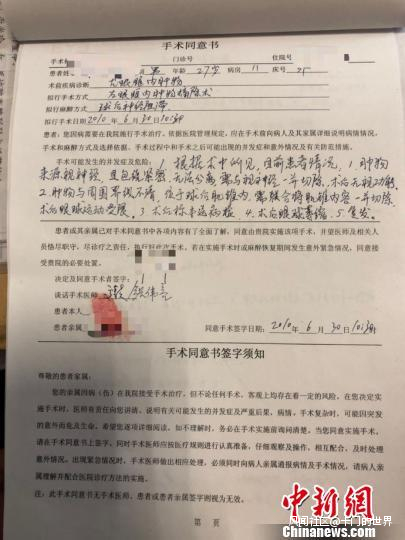 手术同意书
手术
门诊号
住院号
患者姓
男 年龄 27岁 病房 11 床号 25
术前疾病诊断 左眼眶内肿物
拟行手术方式 左眼眶内肿物摘除术
拟行麻醉方式 球后神经阻滞
拟行手术日期 2010 年 6 月 30 日
患者：您因病需要在我院施行手术治疗。依据医院管理规定，应在手术前向病人及其家属详细说明病情情况，
手术和麻醉方式及选择依据，手术过程中和手术之后可能出现的并发症和意外情况及有关防范措施。
手术可能发生的并发症及危险： 1. 根据术中所见，目前患者情况， 1. 肿物
来源视神经，且包绕紧密，无法分离，需与视神经一并切除，术后无视功能。
2. 肿物与周围界线不清，位于球后肌锥内，需联合将肌锥内容一并切除，
术后眼球运动受限。 3. 术后标本送病检， 4. 术后眼球萎缩， 5. 复发。
患者或其亲属已对手术同意书中各内容有了全面了解，同意由贵院实施该项手术，并望医师及相关人
员恪尽职守，尽诊疗之责任，执行好此次手术，若在实施手术时或麻醉恢复期间发生意外紧急情况，同意接
受贵院的必要处置。
决定及同意手术者签字：
谈话手术医师
患者本人
患者亲属
同意手术签字日期： 2010 年 6 月 30 日
手术同意书签字须知
尊敬的患者家属：
您的亲属因病（伤）在我院接受手术治疗，但不论任何手术，客观上均存在着一定的风险，在您决定实
施手术时，医师有责任向您讲清、说明有关可能发生的并发症及严重后果，病情，手术复杂时，可能因突发
的意外而危及生命。希望您逐项详细阅读，如不理解时，务必在手术实施前询问清楚。当您同意实施手术，
请在手术同意书上签字，同时手术医师应按医疗规则进行认真准备，仔细观察及操作，相互配合，及时处理
意外情况。出现紧急情况时，手术医师做出相应处理，必须同时向病人亲属通报病情及手术情况，请病人亲
属理解并配合医院诊疗方法的实施。
注：此手术同意书无手术医师、患者或患者亲属签字则视为无效。
第 页
中新网
风闻社区@卡门的世界
CHINANEWS.COM